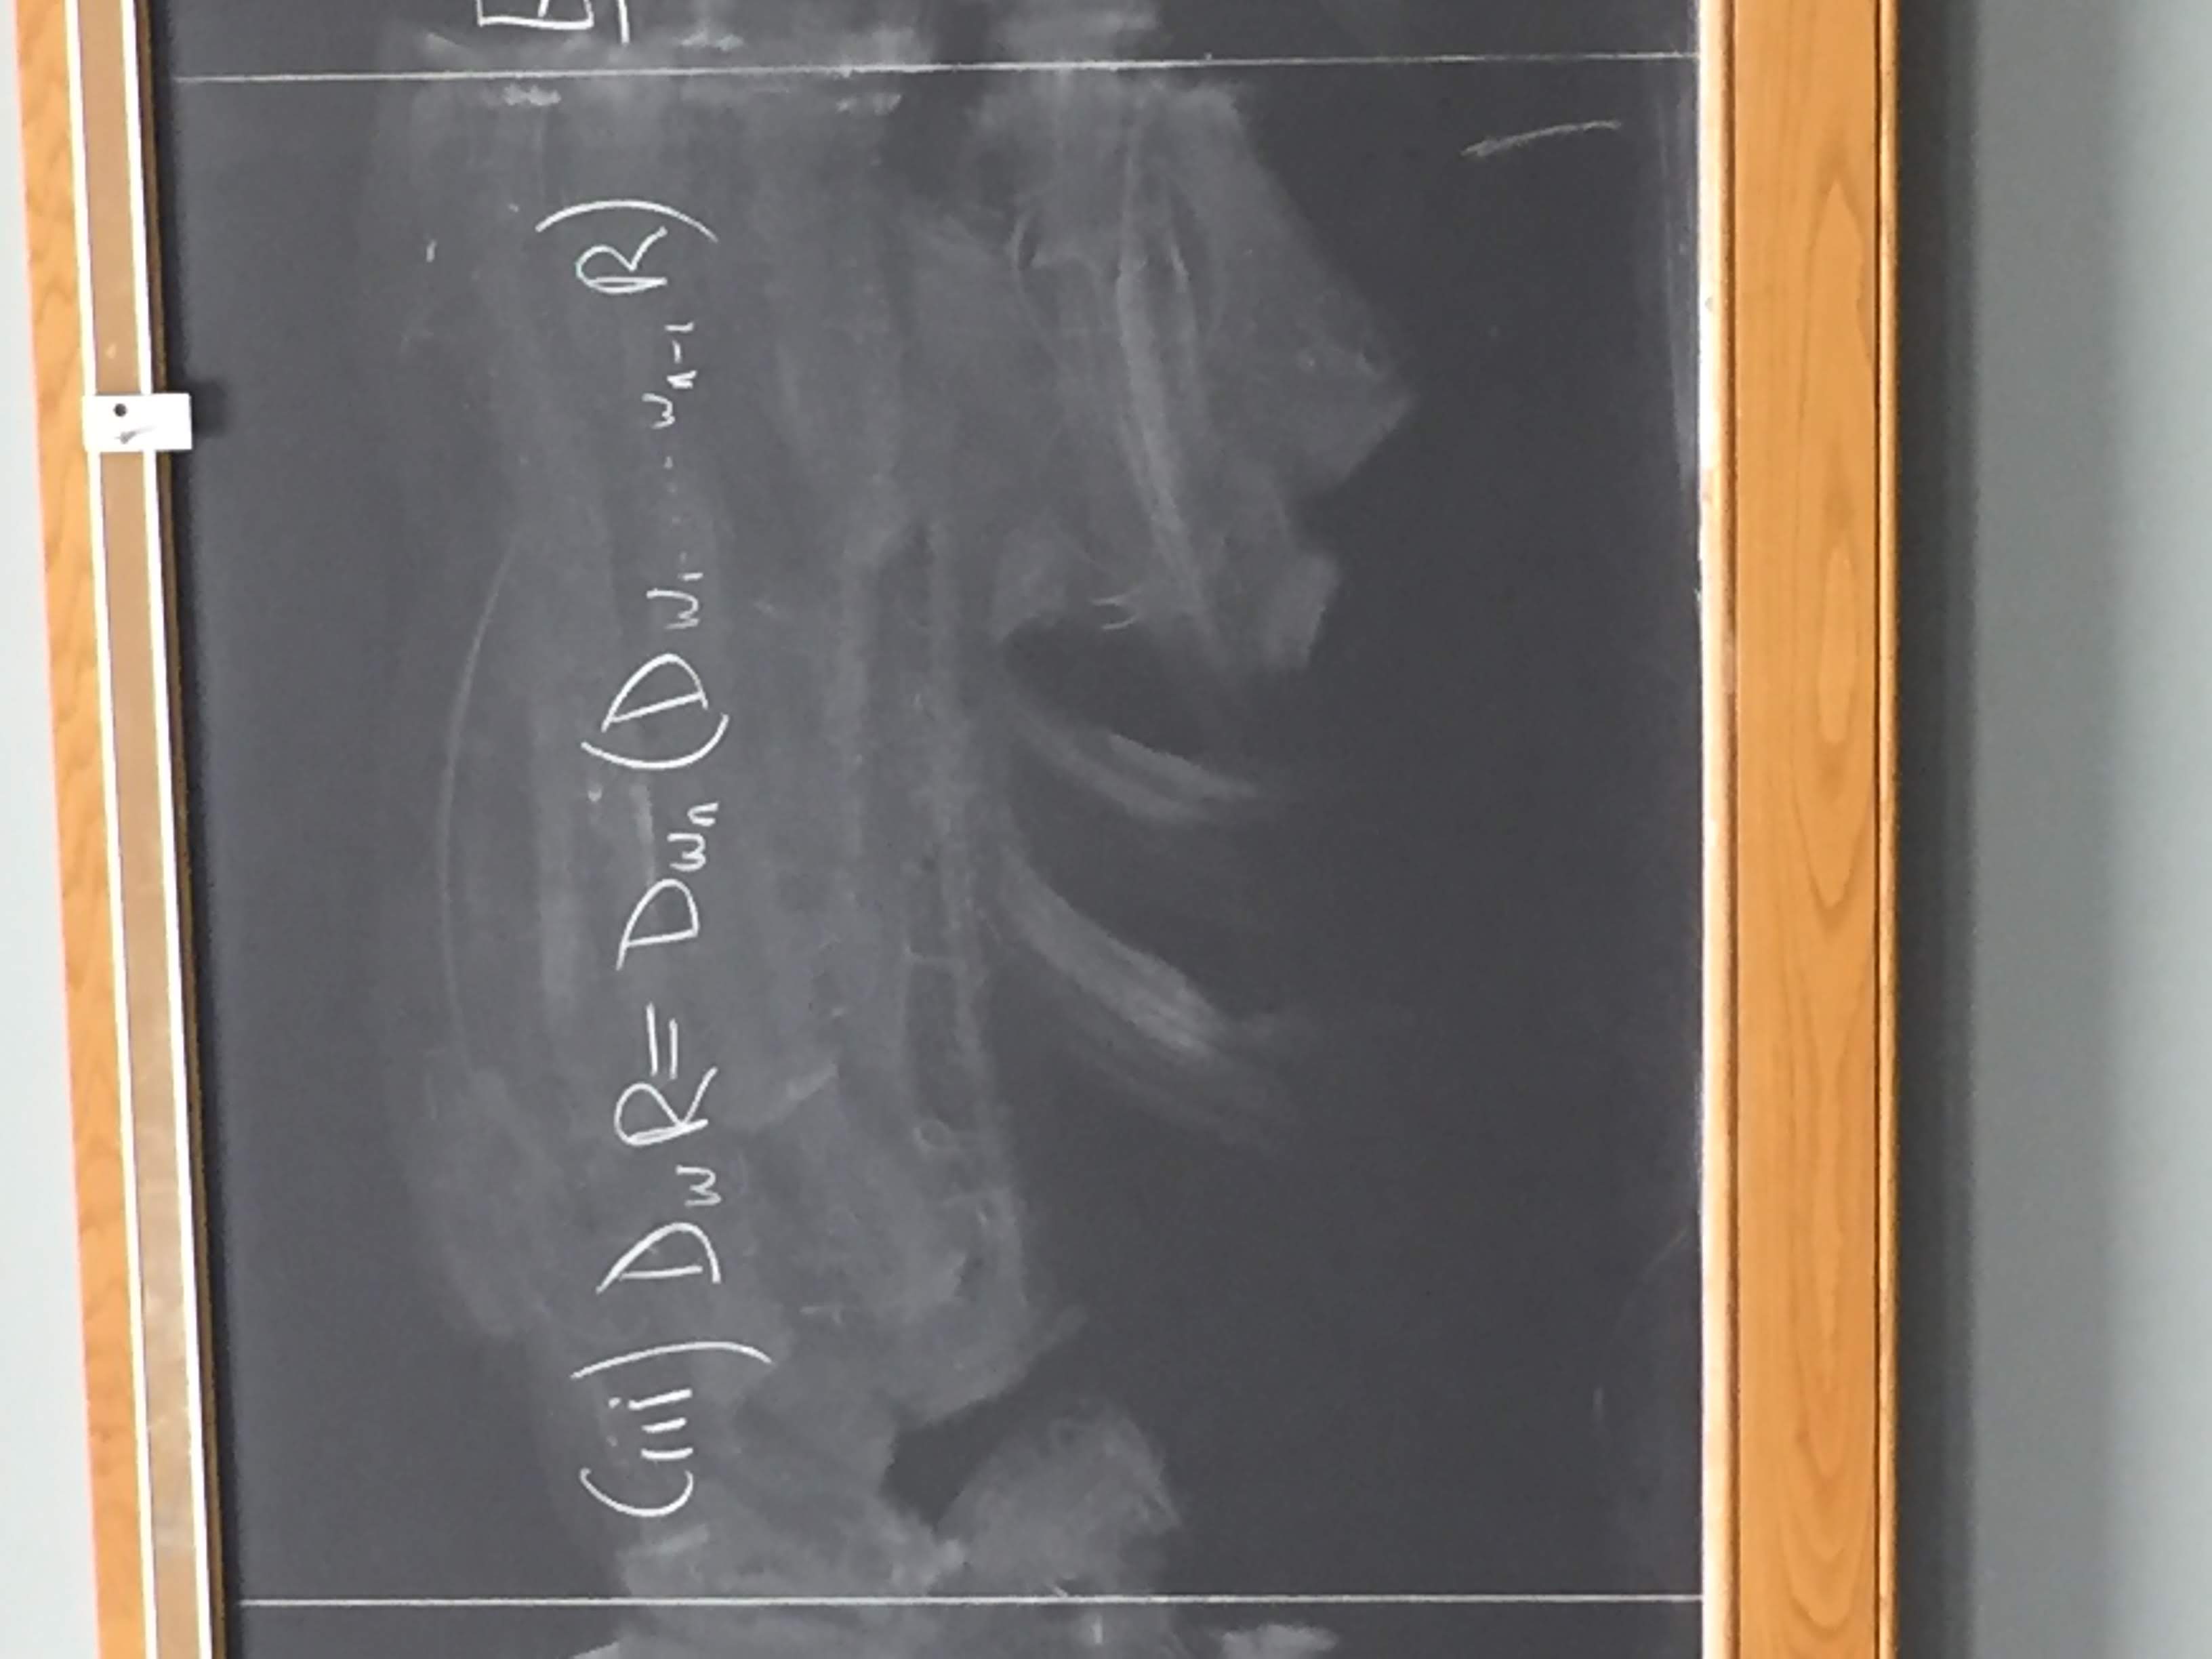 (iii) D_w R = D_{w_n} (D_{w_1 ..... w_{n-1}} R)
E